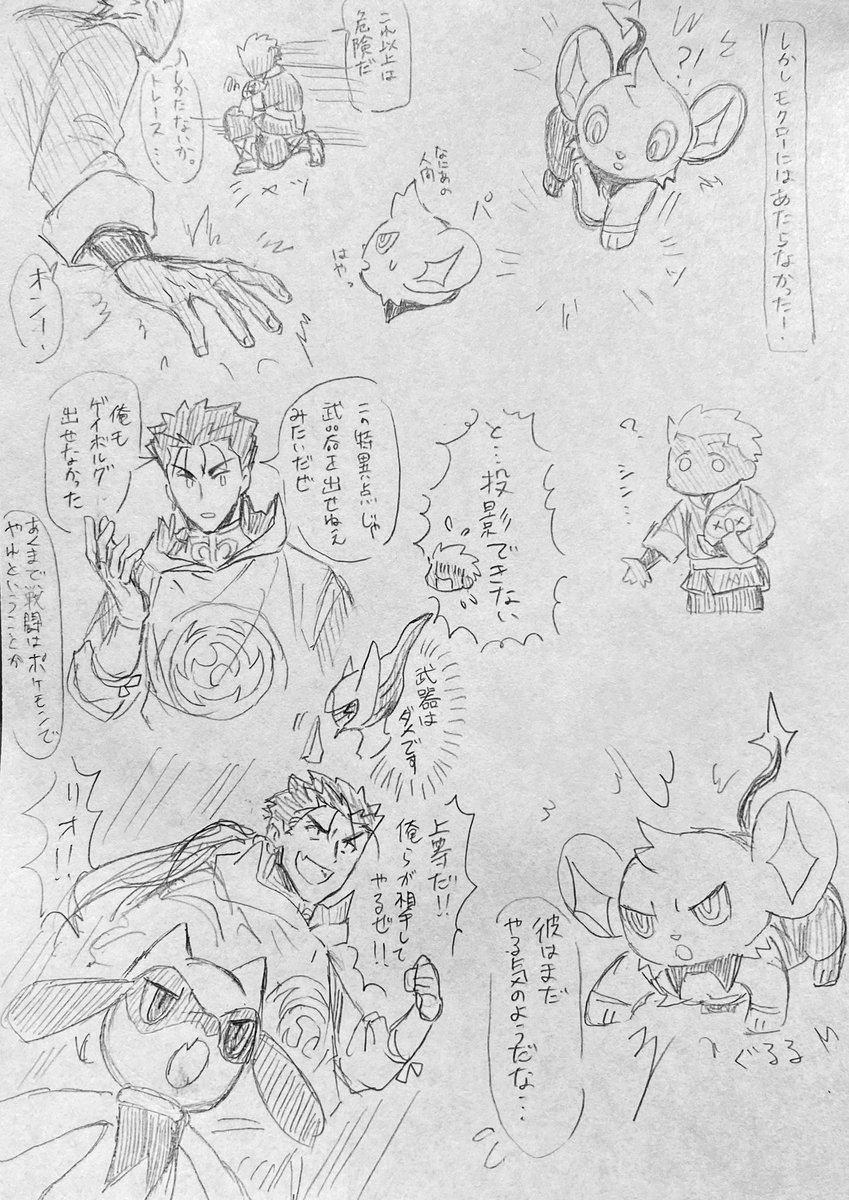 しかしモクローにはあたらなかった！
?!
これ以上は
危険だ
しかたないか。
トレース…
シャッ
なにあの
人間
はやっ
パ
ミッ
オン！
?
シン…
と…投影できない
この特異点じゃ
武器を出せねえ
みたいだぜ
俺も
ゲイボルグ
出せなかった
武器は
ダメです
あくまで戦闘はポケモンで
やれということか
彼はまだ
やる気のようだな…
ぐるる
上等だ!!
俺らが相手して
やるぜ!!
リオ!!